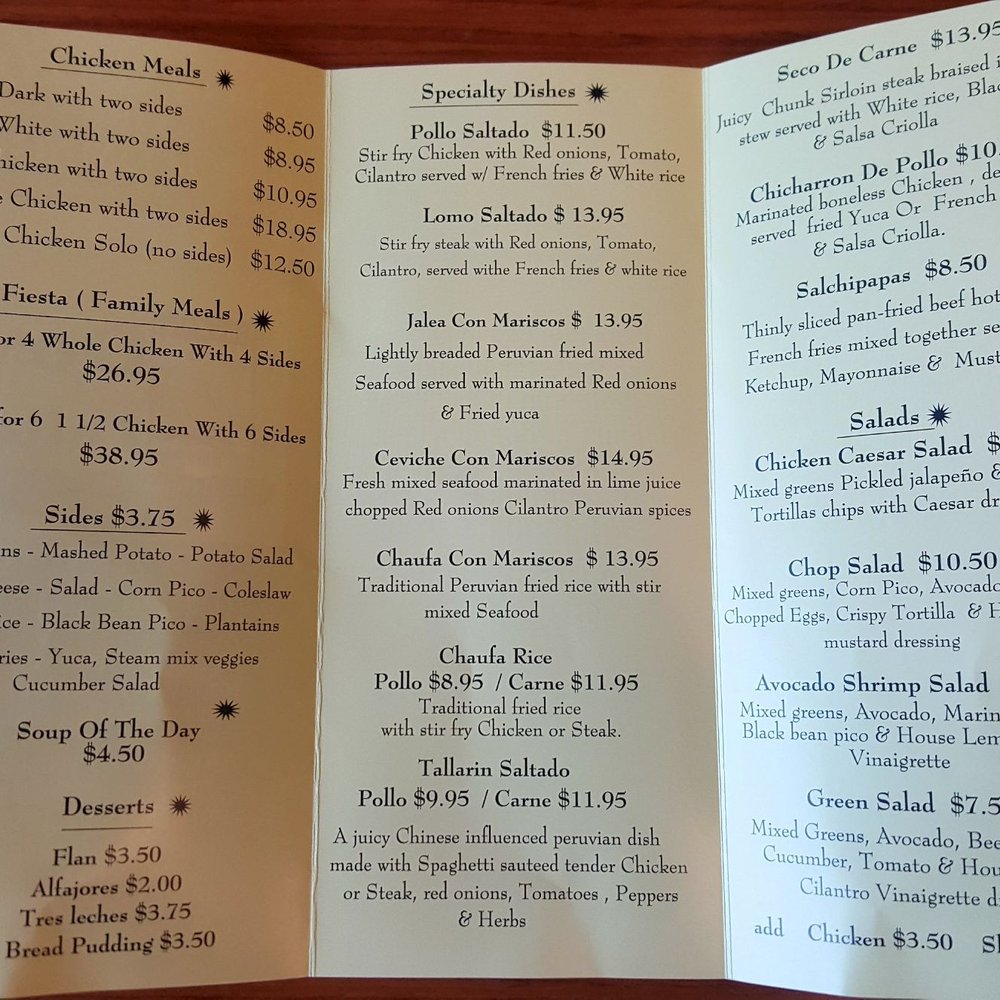 Chicken Meals
Dark with two sides $8.50
White with two sides $8.95
hicken with two sides $10.95
e Chicken with two sides $18.95
Chicken Solo (no sides) $12.50
Fiesta ( Family Meals )
or 4 Whole Chicken With 4 Sides
$26.95
for 6 1 1/2 Chicken With 6 Sides
$38.95
Sides $3.75
ns - Mashed Potato - Potato Salad
eese - Salad - Corn Pico - Coleslaw
ice - Black Bean Pico - Plantains
ries - Yuca, Steam mix veggies
Cucumber Salad
Soup Of The Day
$4.50
Desserts
Flan $3.50
Alfajores $2.00
Tres leches $3.75
Bread Pudding $3.50
Specialty Dishes
Pollo Saltado $11.50
Stir fry Chicken with Red onions, Tomato,
Cilantro served w/ French fries & White rice
Lomo Saltado $ 13.95
Stir fry steak with Red onions, Tomato,
Cilantro, served withe French fries & white rice
Jalea Con Mariscos $ 13.95
Lightly breaded Peruvian fried mixed
Seafood served with marinated Red onions
& Fried yuca
Ceviche Con Mariscos $14.95
Fresh mixed seafood marinated in lime juice
chopped Red onions Cilantro Peruvian spices
Chaufa Con Mariscos $ 13.95
Traditional Peruvian fried rice with stir
mixed Seafood
Chaufa Rice
Pollo $8.95 / Carne $11.95
Traditional fried rice
with stir fry Chicken or Steak.
Tallarin Saltado
Pollo $9.95 / Carne $11.95
A juicy Chinese influenced peruvian dish
made with Spaghetti sauteed tender Chicken
or Steak, red onions, Tomatoes , Peppers
& Herbs
Seco De Carne $13.95
Juicy Chunk Sirloin steak braised i
stew served with White rice, Blac
& Salsa Criolla
Chicharron De Pollo $10.
Marinated boneless Chicken , de
served fried Yuca Or French
& Salsa Criolla.
Salchipapas $8.50
Thinly sliced pan-fried beef hot
French fries mixed together se
Ketchup, Mayonnaise & Must
Salads
Chicken Caesar Salad $
Mixed greens Pickled jalapeño &
Tortillas chips with Caesar dr
Chop Salad $10.50
Mixed greens, Corn Pico, Avocado
Chopped Eggs, Crispy Tortilla & H
mustard dressing
Avocado Shrimp Salad
Mixed greens, Avocado, Marin
Black bean pico & House Lem
Vinaigrette
Green Salad $7.5
Mixed Greens, Avocado, Bee
Cucumber, Tomato & Hou
Cilantro Vinaigrette d
add Chicken $3.50 Sh